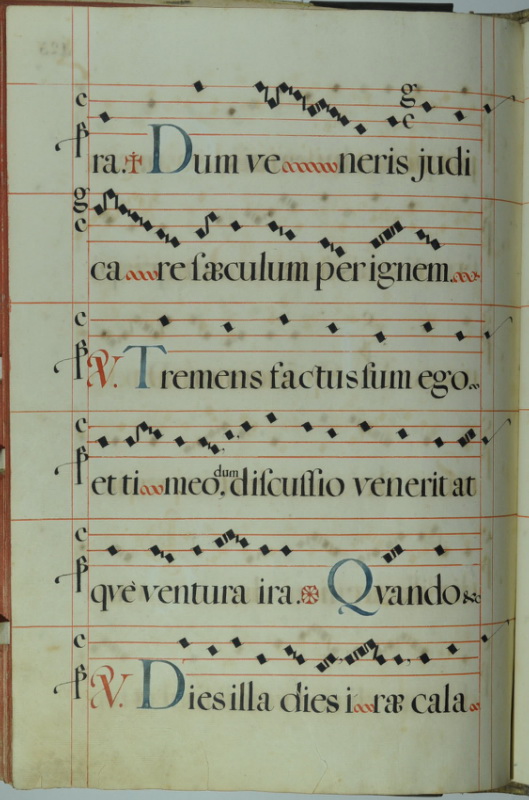 ra. ✝ Dum ve neris judi
ca re ſæculum per ignem.
℣. Tremens factus ſum ego.
et ti meo, dum diſcuſſio venerit at
qvè ventura ira. Qvando &c
℣. Dies illa dies i ræ cala